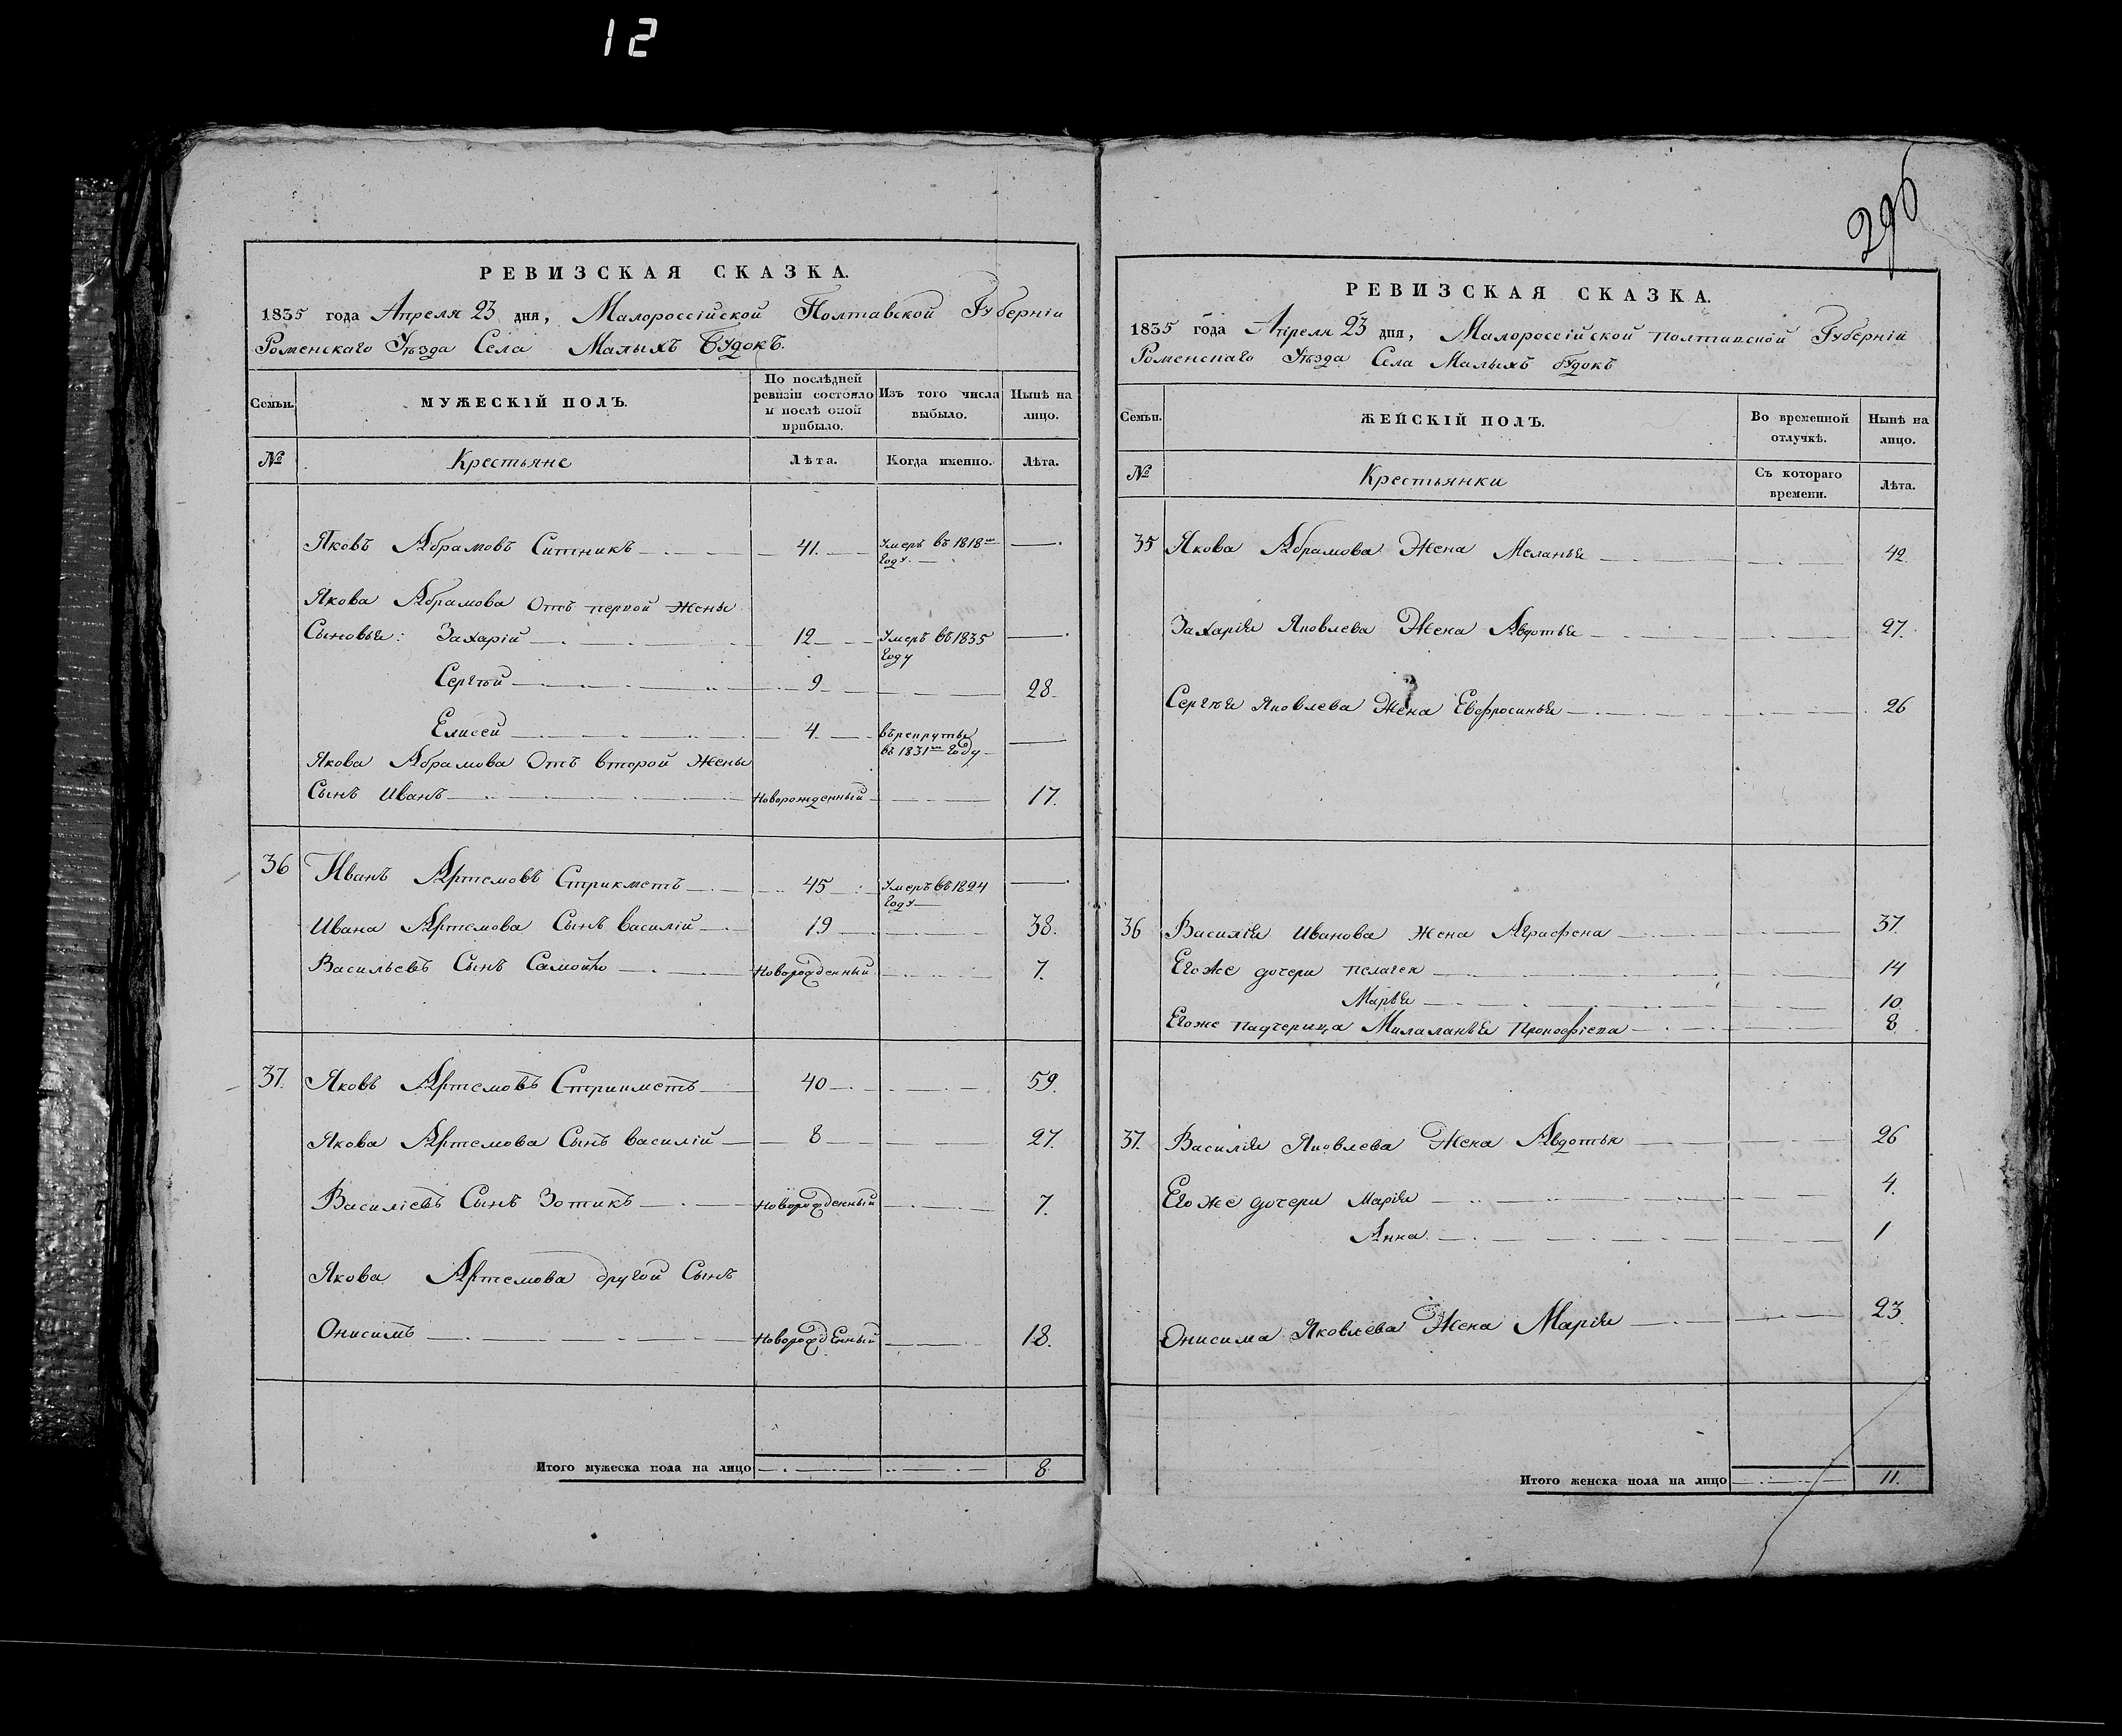 12
296
РЕВИЗСКАЯ СКАЗКА.
1835 года Апреля 23 дня, Малороссійской Полтавской Губерніи
Роменскаго Уѣзда Села Малыхъ Будокъ.
Семьи.
МУЖЕСКІЙ ПОЛЪ.
По послѣдней ревизіи состояло и послѣ оной прибыло.
Изъ того числа выбыло.
Нынѣ на лицо.
№ Крестьяне Лѣта. Когда именно. Лѣта.
Яковъ Абрамовъ Ситникъ 41. Умеръ въ 1818м Году.
Якова Абрамова Отъ первой Жены
Сыновья: Захарій 12 Умеръ въ 1835 Году
Сергѣй 9 28
Елисей 4 въ рекруты въ 1831м Году
Якова Абрамова Отъ второй Жены
Сынъ Иванъ Новорожденный 17.
36 Иванъ Артемовъ Стрикметъ 45 Умеръ въ 1824 Году
Ивана Артемова Сынъ Василій 19 38.
Васильевъ Сынъ Самойло Новорожденный 7.
37. Яковъ Артемовъ Стрикметъ 40 59.
Якова Артемова Сынъ Василій 8 27.
Василіевъ Сынъ Зотикъ Новорожденный 7.
Якова Артемова другой Сынъ
Онисимъ Новорожденный 18.
Итого мужеска пола на лицо 8.
РЕВИЗСКАЯ СКАЗКА.
1835 года Апреля 23 дня, Малороссійской Полтавской Губерній
Роменскаго Уѣзда Села Малыхъ Будокъ
Семьи.
ЖЕНСКІЙ ПОЛЪ.
Во временной отлучкѣ.
Нынѣ на лицо.
№ Крестьянки Съ котораго времени. Лѣта.
35 Якова Абрамова Жена Меланья 42.
Захарія Яковлева Жена Авдотья 27.
Сергѣя Яковлева Жена Евфросинья 26
36 Василія Иванова Жена Аграфена 37.
Егоже дочери Пелагея 14
Марья 10
Егоже Падчерица Милаланья Прокофіева 8
37. Василія Яковлева Жена Авдотья 26
Егоже дочери Марія 4.
Анна 1
Онисима Яковлева Жена Марія 23
Итого женска пола на лицо 11.